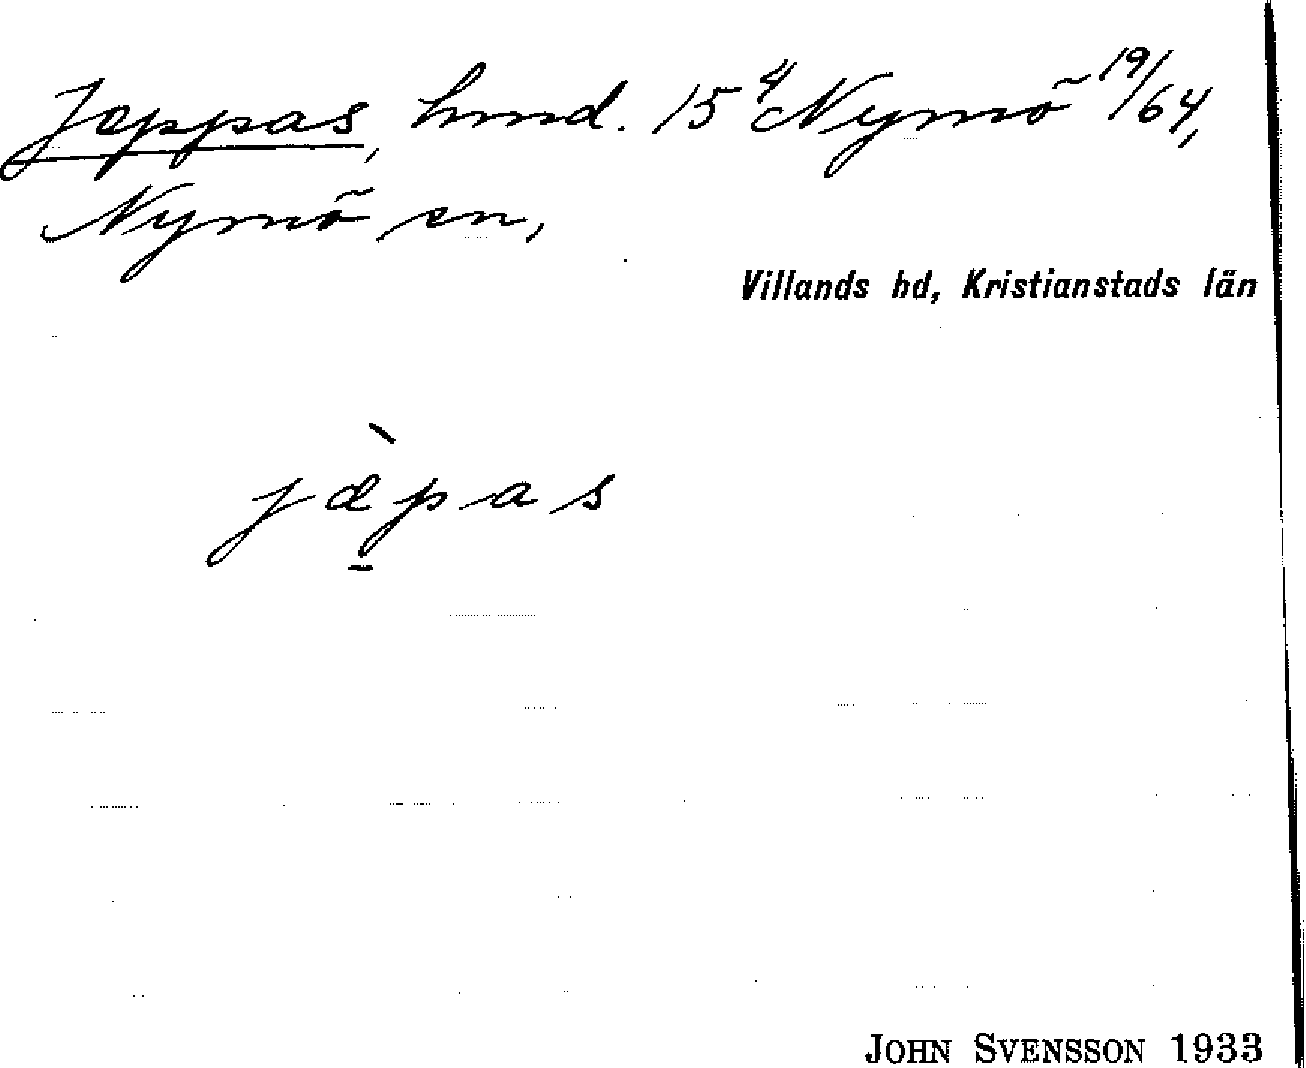 Jeppas, hmd. 15⁴ Nymö 19/64,
Nymö sn,
Villands hd, Kristianstads län
jæ̀pas
JOHN SVENSSON 1933